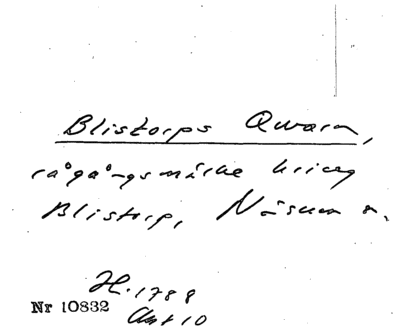 Blistorps Qwarn,
rågångsmärke kring
Blistorp, Näsum s.
H. 1788
Akt 10
Nr 10832